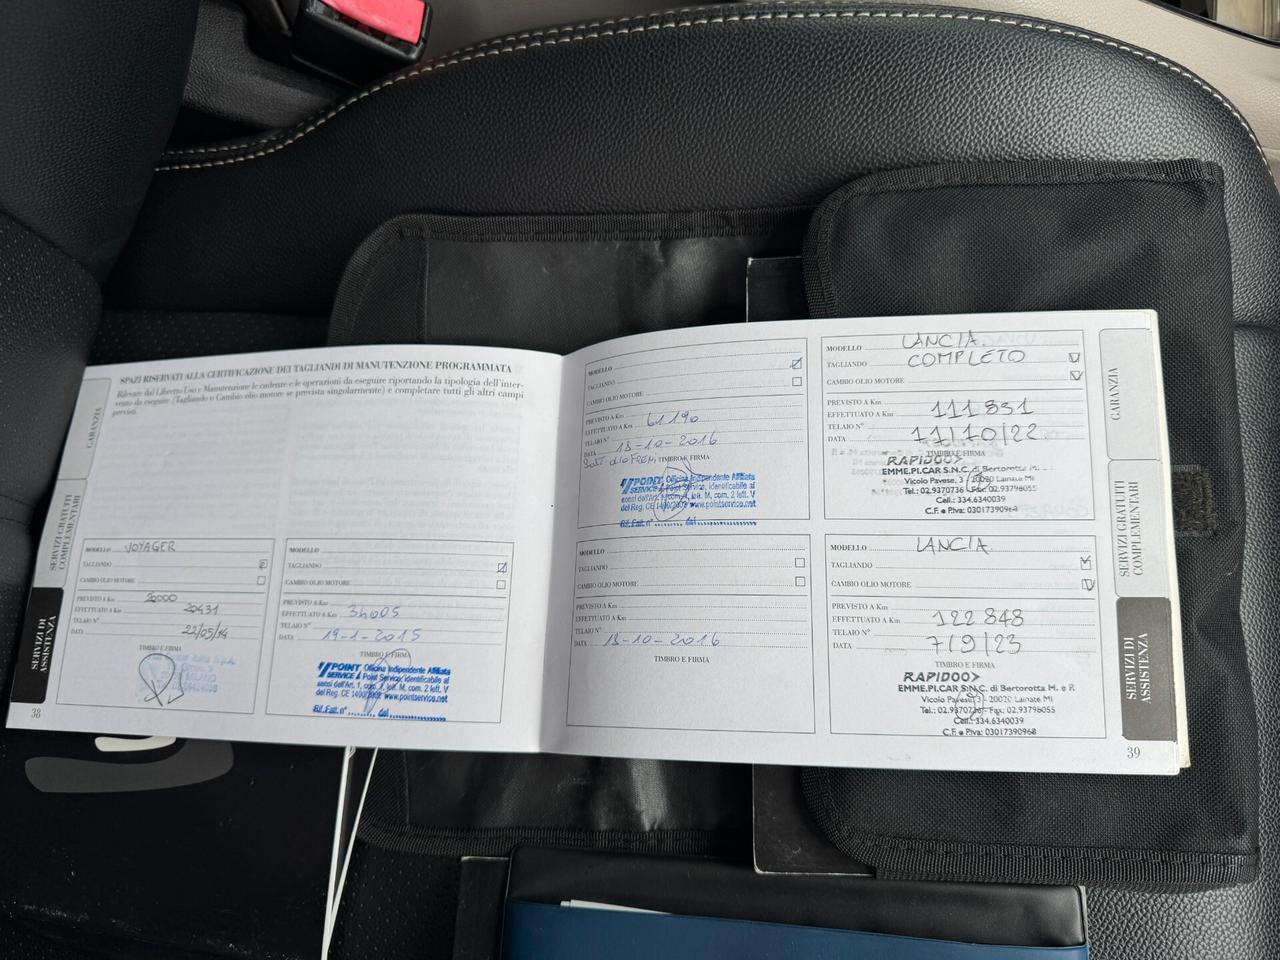 SPAZI RISERVATI ALLA CERTIFICAZIONE DEI TAGLIANDI DI MANUTENZIONE PROGRAMMATA
Rilevare dal Libretto Uso e Manutenzione le cadenze e le operazioni da eseguire riportando la tipologia dell'inter-
vento da eseguire (Tagliando o Cambio olio motore se prevista singolarmente) e completare tutti gli altri campi
previsti.
GARANZIA
SERVIZI GRATUITI
COMPLEMENTARI
SERVIZI DI
ASSISTENZA
38
MODELLO VOYAGER
TAGLIANDO
CAMBIO OLIO MOTORE
PREVISTO A Km 20000
EFFETTUATO A Km 20431
TELAIO N°
DATA 22/05/14
TIMBRO E FIRMA
MODELLO
TAGLIANDO
CAMBIO OLIO MOTORE
PREVISTO A Km
EFFETTUATO A Km 34005
TELAIO N°
DATA 19-1-2015
TIMBRO E FIRMA
POINT SERVICE
Officina Indipendente Affiliata
Point Service, identificabile ai
sensi dell'Art. 1, com. 1, lett. M, com. 2 lett. V
del Reg. CE 1400/2002 www.pointservice.net
Rif. Fatt. n° del
MODELLO
TAGLIANDO
CAMBIO OLIO MOTORE
PREVISTO A Km
EFFETTUATO A Km 61190
TELAIO N°
DATA 13-10-2016
TIMBRO E FIRMA
POINT SERVICE
Officina Indipendente Affiliata
Point Service, identificabile ai
sensi dell'Art. 1, com. 1, lett. M, com. 2 lett. V
del Reg. CE 1400/2002 www.pointservice.net
Rif. Fatt. n° del
MODELLO
TAGLIANDO
CAMBIO OLIO MOTORE
PREVISTO A Km
EFFETTUATO A Km
TELAIO N°
DATA 13-10-2016
TIMBRO E FIRMA
MODELLO LANCIA
TAGLIANDO COMPLETO
CAMBIO OLIO MOTORE
PREVISTO A Km
EFFETTUATO A Km 111831
TELAIO N°
DATA 11/10/22
TIMBRO E FIRMA
RAPIDOO>
EMME.PI.CAR S.N.C. di Bertorotta M.
Vicolo Pavese, 3 - 20020 Lainate MI
Tel.: 02.9370736 - Fax: 02.93798055
Cell.: 334.6340039
C.F. e P.iva: 03017390968
MODELLO LANCIA
TAGLIANDO
CAMBIO OLIO MOTORE
PREVISTO A Km
EFFETTUATO A Km 122848
TELAIO N°
DATA 7/9/23
TIMBRO E FIRMA
RAPIDOO>
EMME.PI.CAR S.N.C. di Bertorotta M. e P.
Vicolo Pavese, 3 - 20020 Lainate MI
Tel.: 02.9370736 - Fax: 02.93798055
Cell.: 334.6340039
C.F. e P.iva: 03017390968
GARANZIA
SERVIZI GRATUITI
COMPLEMENTARI
SERVIZI DI
ASSISTENZA
39